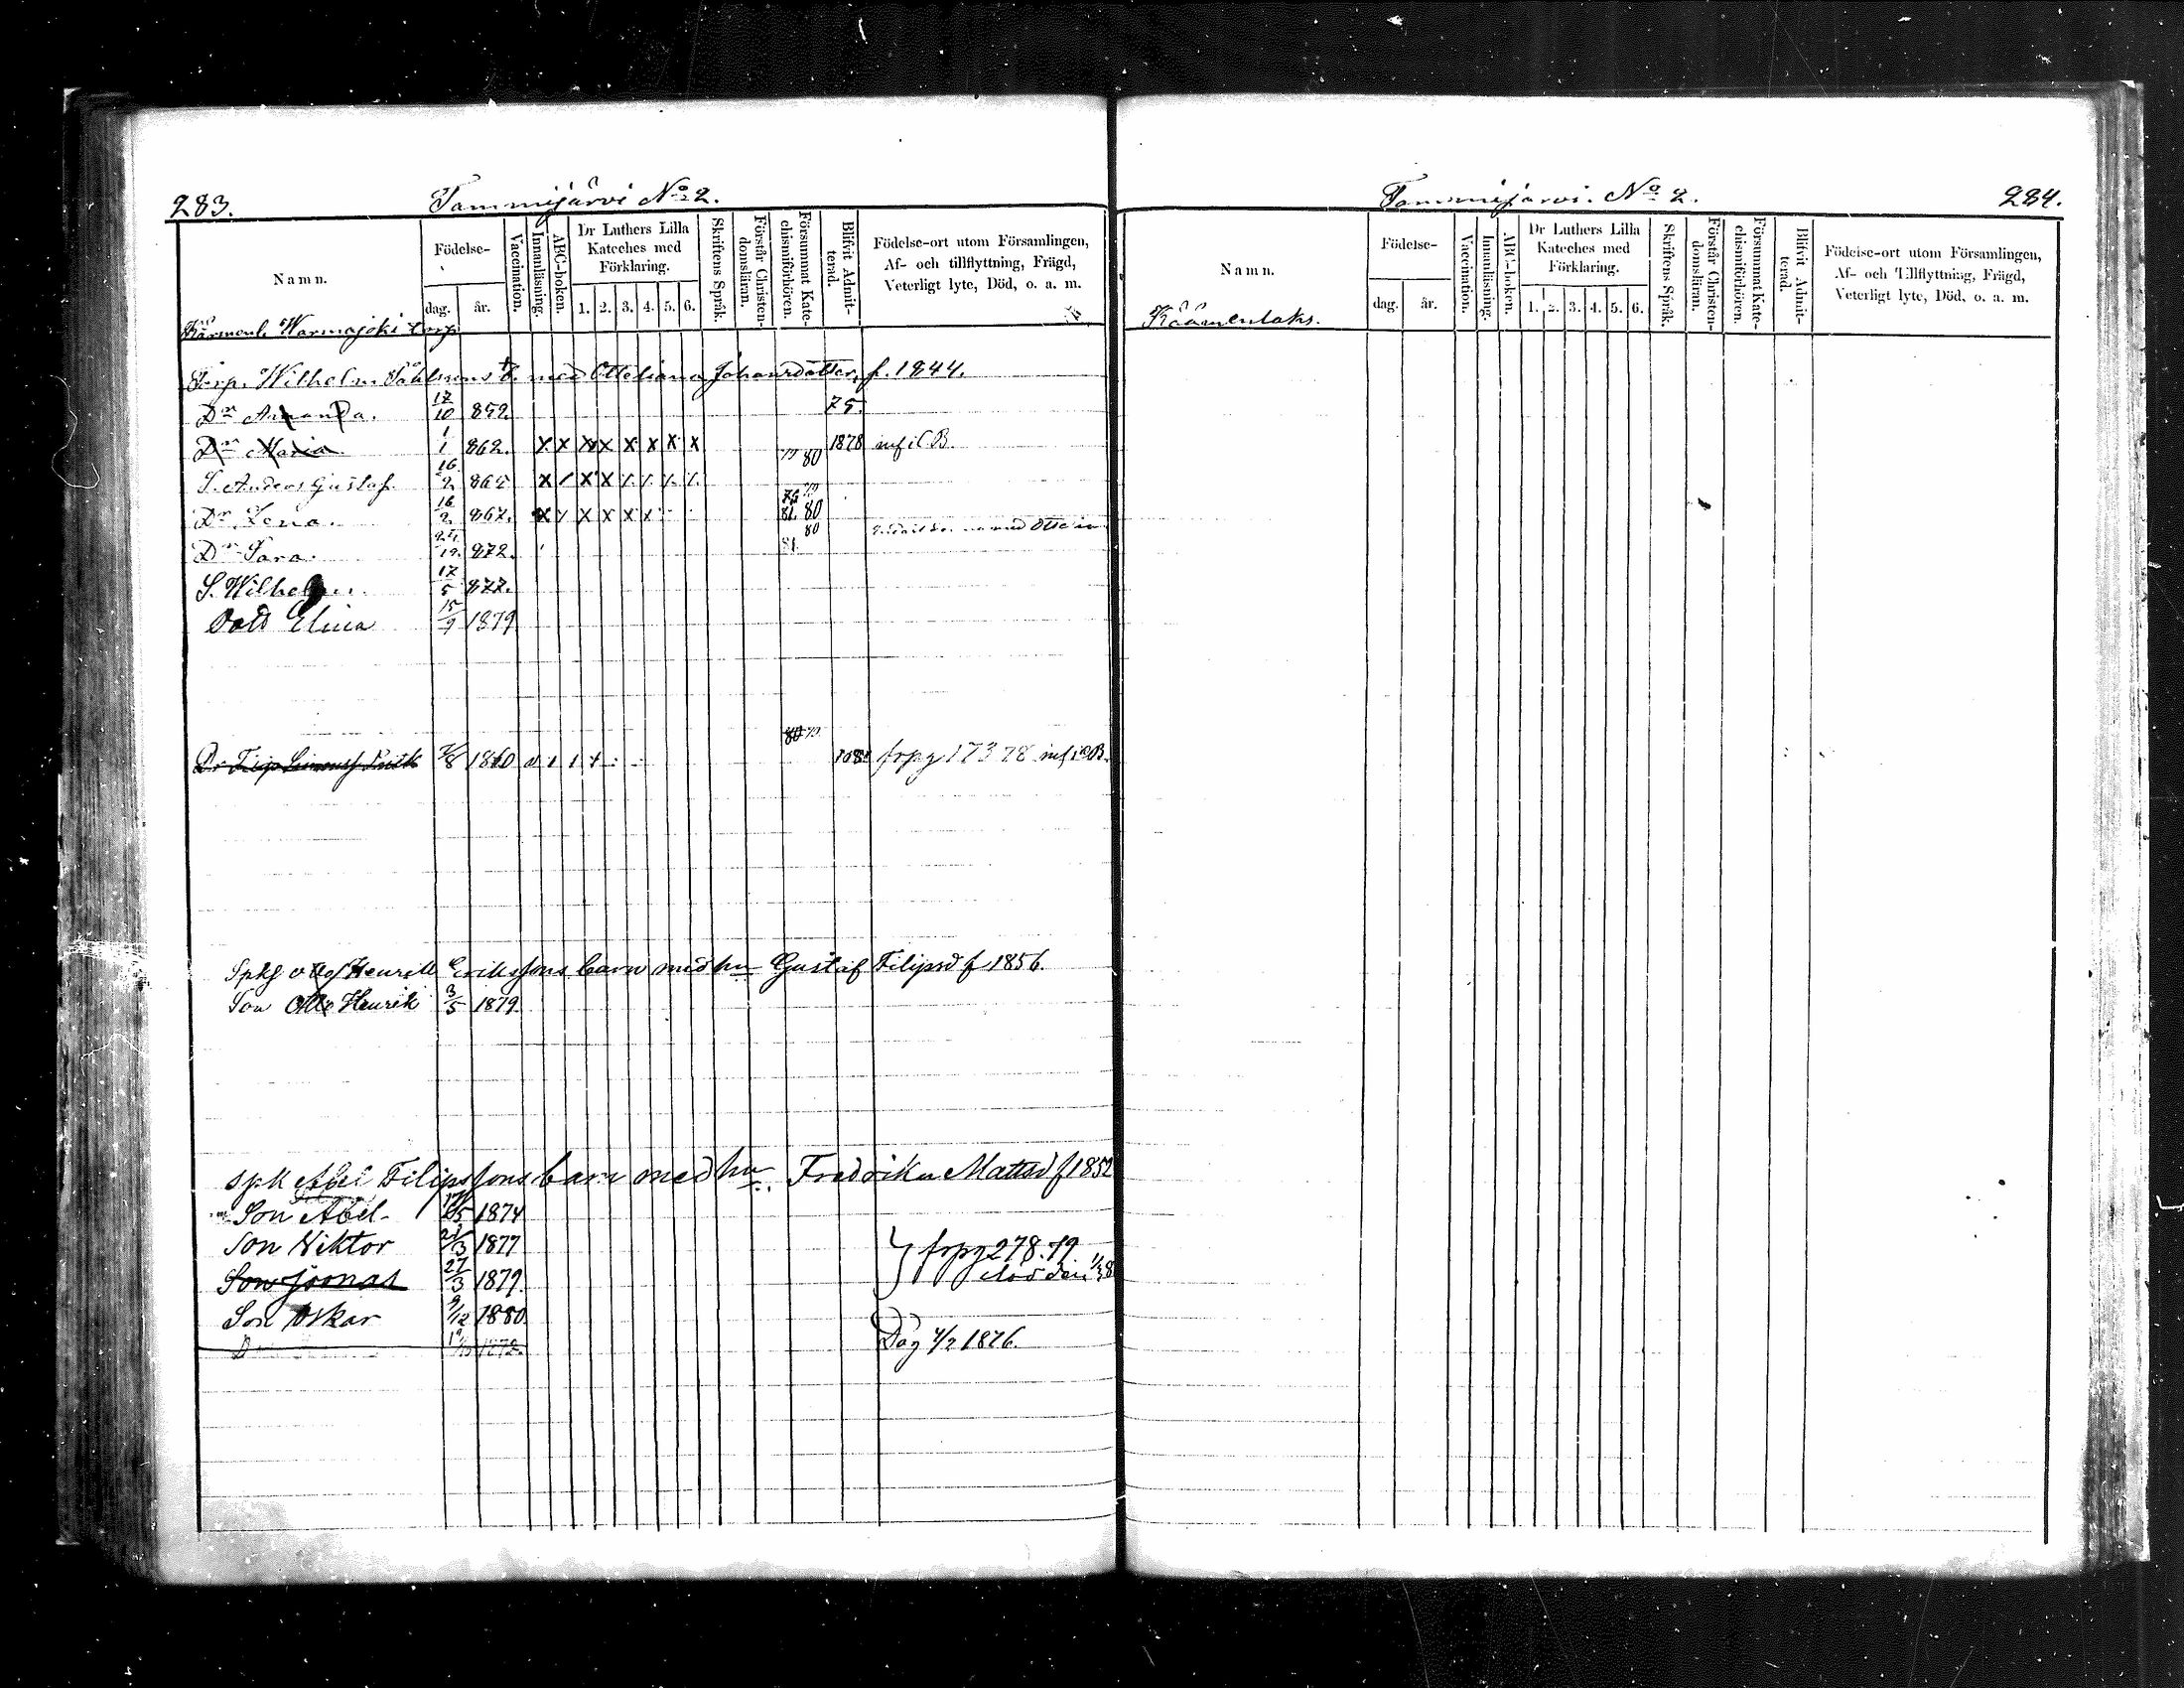 283. Tammijärvi No 2.
Namn. Födelse- dag. år. Vaccination. Innanläsning. ABC-boken. Dr Luthers Lilla Kateches med Förklaring. 1. 2. 3. 4. 5. 6. Skriftens Språk. Förstår Christendomsläran. Försummat Katechismiförhören. Blifvit Admitterad. Födelse-ort utom Församlingen, Af- och tillflyttning, Frägd, Veterligt lyte, Död, o. a. m.
Warmajoki torp
Torp. Wilhelm med Johansdotter, f. 1844.
Dr Amanda. 17/10 859. 75.
Dr Maria 1/1 862. X X X X X X X X 79 80 1878
S. Anders Gustaf. 16/2 865
Dr Lena. 16/2 867. 81. 80
Dr Sara. 872. 81. 80
S. Wilhelm 17/5 877.
Dott Elina 15/9 1879
80 79
Dr Filip 7/8 1860 frpg 173 78
Spkg Henrik Erikssons barn med hu Gustaf Filipsd f 1856.
Son Otto Henrik 3/5 1879.
spk Abel Filipssons barn med hu. Fredrika Mattsd f 1852
Son Abel 1874
Son Viktor 21/3 1877 frpg 278.79
Son Jonas 27/3 1879.
Son Oskar 9/12 1880.
D Dog 4/2 1876.
Tammijärvi. No 2. 284.
Namn. Födelse- dag. år. Vaccination. Innanläsning. ABC-boken. Dr Luthers Lilla Kateches med Förklaring. 1. 2. 3. 4. 5. 6. Skriftens Språk. Förstår Christendomsläran. Försummat Katechismiförhören. Blifvit Admitterad. Födelse-ort utom Församlingen, Af- och Tillflyttning, Frägd, Veterligt lyte, Död, o. a. m.
Käämenlaks.